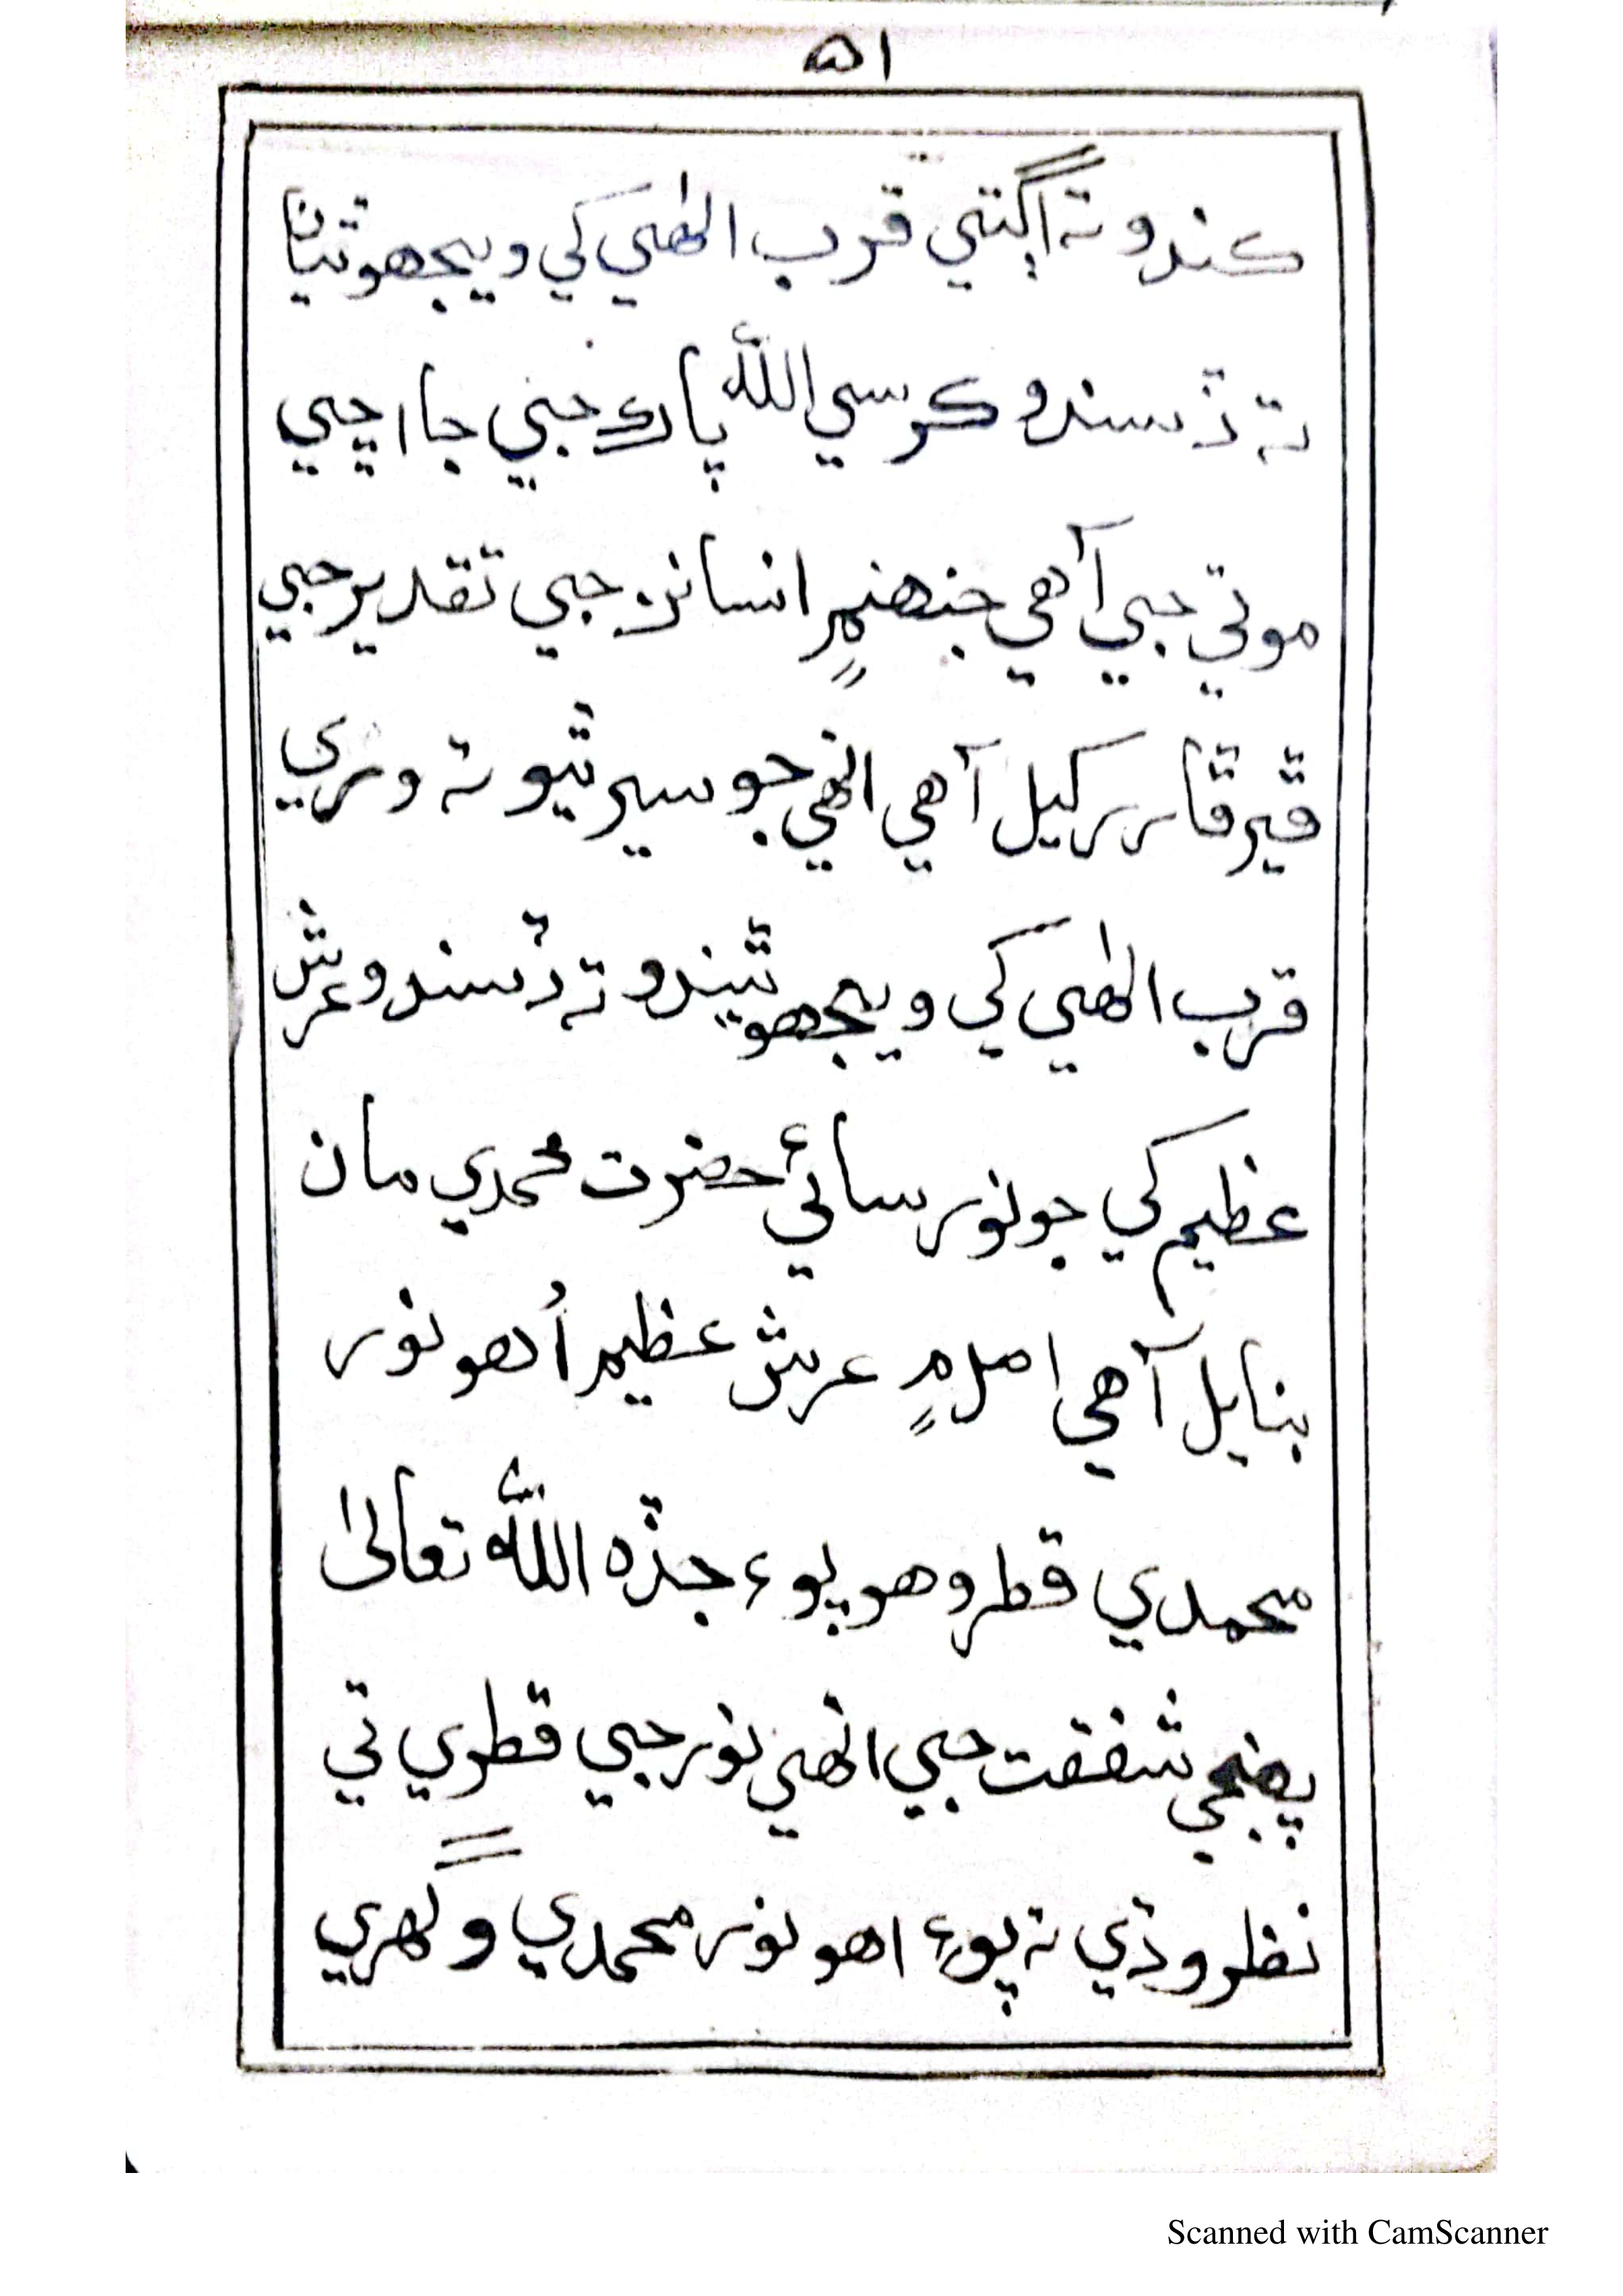 ۵۱
ڪندو ته اڳتي قرب الٰهي کي ويجهو ٿيان
ته ڏسندو ڪرسي الله پاڪ جي جا اڇي
موتي جي آهي جنهن ۾ انسانن جي تقدير جي
ڦير ڦار رکيل آهي انهي جو سير ٿيو ته وري
قرب الٰهي کي ويجهو ٿيندو ته ڏسندو عرش
عظيم کي جو نور سائي حضرت محمدي مان
بنايل آهي اصل ۾ عرش عظيم اُهو نور
محمدي قطرو هو پوء جڏه الله تعالىٰ
پهنجي شفقت جي انهي نور جي قطري تي
نظر وڌي ته پوء اهو نور محمدي و گهري
Scanned with CamScanner